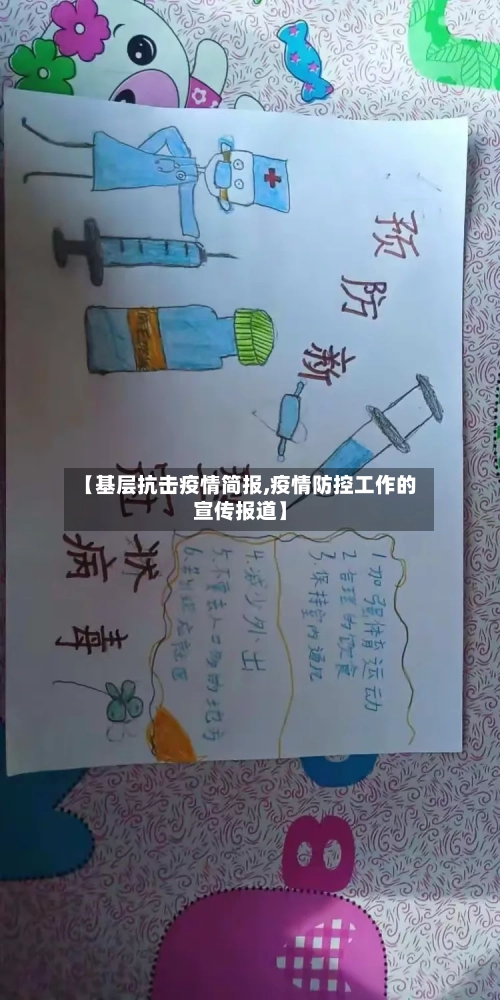 【基层抗击疫情简报,疫情防控工作的
宣传报道】
预防新
型冠
状病毒
1加强体育运动
2合理的饮食
3.保持室内通风
4.减少外出
5.不要去人口多的地方